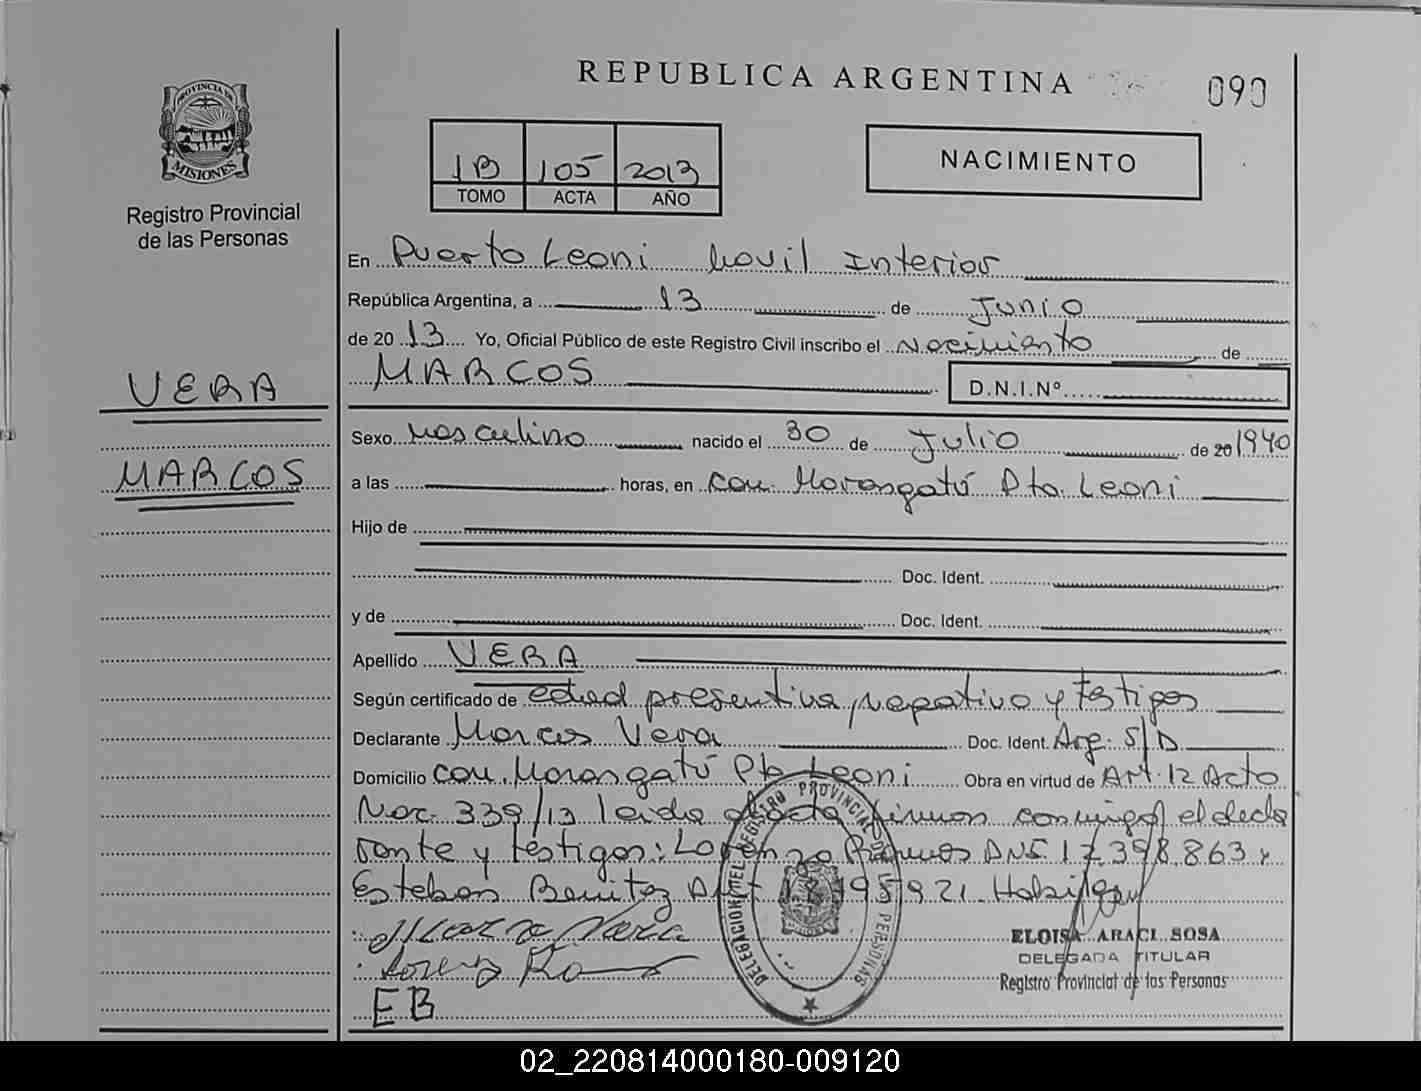 REPUBLICA ARGENTINA
090
PROVINCIA DE
MISIONES
Registro Provincial
de las Personas
1B 105 2013
TOMO ACTA AÑO
NACIMIENTO
En Puerto Leoni Movil Interior
República Argentina, a 13 de Junio
de 20 13 Yo, Oficial Público de este Registro Civil inscribo el Nacimiento de
MARCOS D.N.I.Nº
VERA
MARCOS
Sexo Masculino nacido el 30 de Julio de 20 1940
a las horas, en Com. Marangatú Pto. Leoni
Hijo de
Doc. Ident.
y de Doc. Ident.
Apellido VERA
Según certificado de edad presuntiva, negativo y testigos
Declarante Marcos Vera Doc. Ident. Arg. S/D
Domicilio com. Marangatú Pto Leoni Obra en virtud de Art. 12 Acta
Nac. 339/13 leida el acta firman conmigo el decla
rante y testigos: Lorenzo Ramos DNI 17.398.863 y
Esteban Benitez
EB
DELEGACION REGISTRO PROVINCIAL DE LAS PERSONAS
ELOISA ARACI SOSA
DELEGADA TITULAR
Registro Provincial de las Personas
02_220814000180-009120